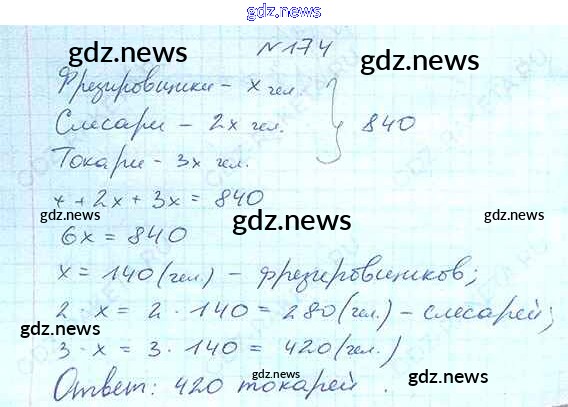 gdz.news
№ 174
gdz.news
gdz.news
Фрезировщики - x чел.
Слесари - 2x чел. } 840
Токари - 3x чел.
x + 2x + 3x = 840
gdz.news
gdz.news
gdz.news
6x = 840
x = 140 (чел.) - фрезировщиков;
2 · x = 2 · 140 = 280 (чел.) - слесарей;
gdz.news
3 · x = 3 · 140 = 420 (чел.)
gdz.news
gdz.news
Ответ: 420 токарей.
gdz.news